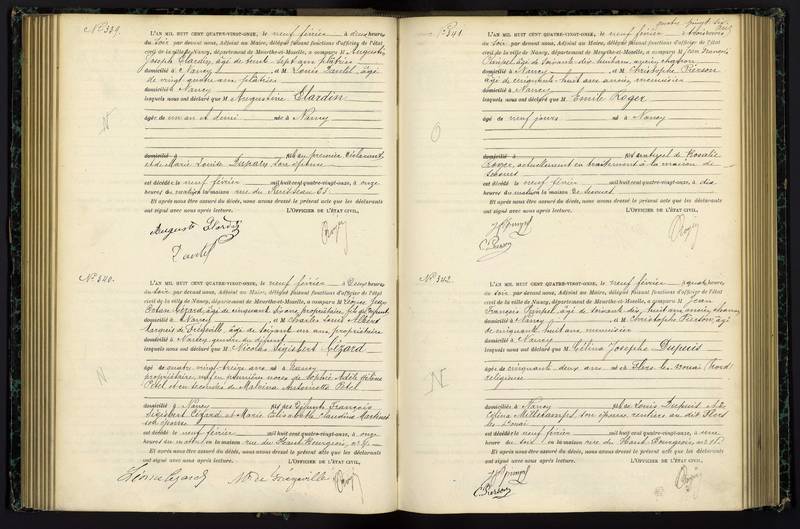 N° 339.
L'AN MIL HUIT CENT QUATRE-VINGT-ONZE, le neuf février à deux heures
du soir par devant nous, Adjoint au Maire, délégué faisant fonctions d'officier de l'état
civil de la ville de Nancy, département de Meurthe-et-Moselle, a comparu M Augustin
Joseph Clardin, âgé de vingt sept ans, plâtrier
domicilié à Nancy et M Louis âgé
de vingt quatre ans, plâtrier
domicilié à Nancy
lesquels nous ont déclaré que M Augustine Clardin
âgé de un an et demi née à Nancy
domicilié à
et de Marie Louise son épouse
est décédée le neuf février mil huit cent quatre-vingt-onze, à onze
heures du matin en la maison rue du
Et après nous être assuré du décès, nous avons dressé le présent acte que les déclarants
ont signé avec nous après lecture. L'OFFICIER DE L'ÉTAT CIVIL,
N° 340.
L'AN MIL HUIT CENT QUATRE-VINGT-ONZE, le neuf février à deux heures
du soir par devant nous, Adjoint au Maire, délégué faisant fonctions d'officier de l'état
civil de la ville de Nancy, département de Meurthe-et-Moselle, a comparu M Léonce Jean
Cézard, âgé de cinquant ans, propriétaire, fils du défunt
domicilié à Nancy et M Charles Louis Albert
Marquis de âgé de soixante un ans, propriétaire
domicilié à Nancy, gendre du défunt
lesquels nous ont déclaré que M Nicolas Sigisbert Cézard
âgé de quatre vingt treize ans né à Nancy
propriétaire, veuf en premières noces de Sophie Adèle
Petel et en secondes de Malvina Antoinette Petel
domicilié à Nancy fils des défunts François
Sigisbert Cézard et Marie Elisabeth Claudine
son épouse
est décédé le neuf février mil huit cent quatre-vingt-onze, à onze
heures du matin en la maison rue du Haut Bourgeois,
Et après nous être assuré du décès, nous avons dressé le présent acte que les déclarants
ont signé avec nous après lecture. L'OFFICIER DE L'ÉTAT CIVIL,
quatre vingt six
N° 341.
L'AN MIL HUIT CENT QUATRE-VINGT-ONZE, le neuf février à trois heures
du soir par devant nous, Adjoint au Maire, délégué faisant fonctions d'officier de l'état
civil de la ville de Nancy, département de Meurthe-et-Moselle, a comparu M Jean François
âgé de soixante dix huit ans, ancien charron
domicilié à Nancy et M Christophe Pierson
âgé de cinquante huit ans, menuisier
domicilié à Nancy
lesquels nous ont déclaré que M Emile Roger
âgé de neuf jours né à Nancy
domicilié à fils naturel de Rosalie
Roger, actuellement en traitement à la maison de
secours
est décédé le neuf février mil huit cent quatre-vingt-onze, à dix
heures du matin en la maison de secours
Et après nous être assuré du décès, nous avons dressé le présent acte que les déclarants
ont signé avec nous après lecture. L'OFFICIER DE L'ÉTAT CIVIL,
C. Pierson
N° 342.
L'AN MIL HUIT CENT QUATRE-VINGT-ONZE, le neuf février à quatre heures
du soir par devant nous, Adjoint au Maire, délégué faisant fonctions d'officier de l'état
civil de la ville de Nancy, département de Meurthe-et-Moselle, a comparu M Jean
François âgé de soixante dix huit ans, ancien charron
domicilié à Nancy et M Christophe Pierson, âgé
de cinquante huit ans, menuisier
domicilié à Nancy
lesquels nous ont déclaré que M Célina Josephe Dupuis
âgée de cinquante deux ans née à Flers lez Douai (Nord)
religieuse
domicilié à Nancy fille de Louis Dupuis et de
son épouse, rentiers au dit Flers
lez Douai
est décédée le neuf février mil huit cent quatre-vingt-onze, à une
heure du soir en la maison rue du Haut Bourgeois,
Et après nous être assuré du décès, nous avons dressé le présent acte que les déclarants
ont signé avec nous après lecture. L'OFFICIER DE L'ÉTAT CIVIL,
C. Pierson